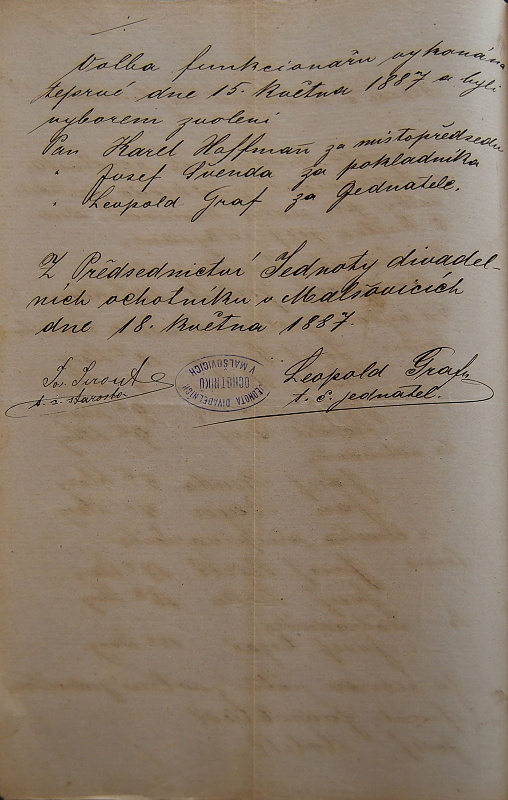 Volba funkcionářu vykonána
teprvé dne 15. května 1887 a byli
vyborem zvoleni
Pan Karel Hoffman za mistopředsedu
" Josef Švenda za pokladníka
" Leopold Graf za Jednatele.
Z Předsednictví Jednoty divadel-
ních ochotníku v Malšovicích
dne 18. května 1887.
t. č. starosta
JEDNOTA DIVADELNÍCH
OCHOTNÍKU
V MALŠOVICÍCH
Leopold Graf
t. č. jednatel.